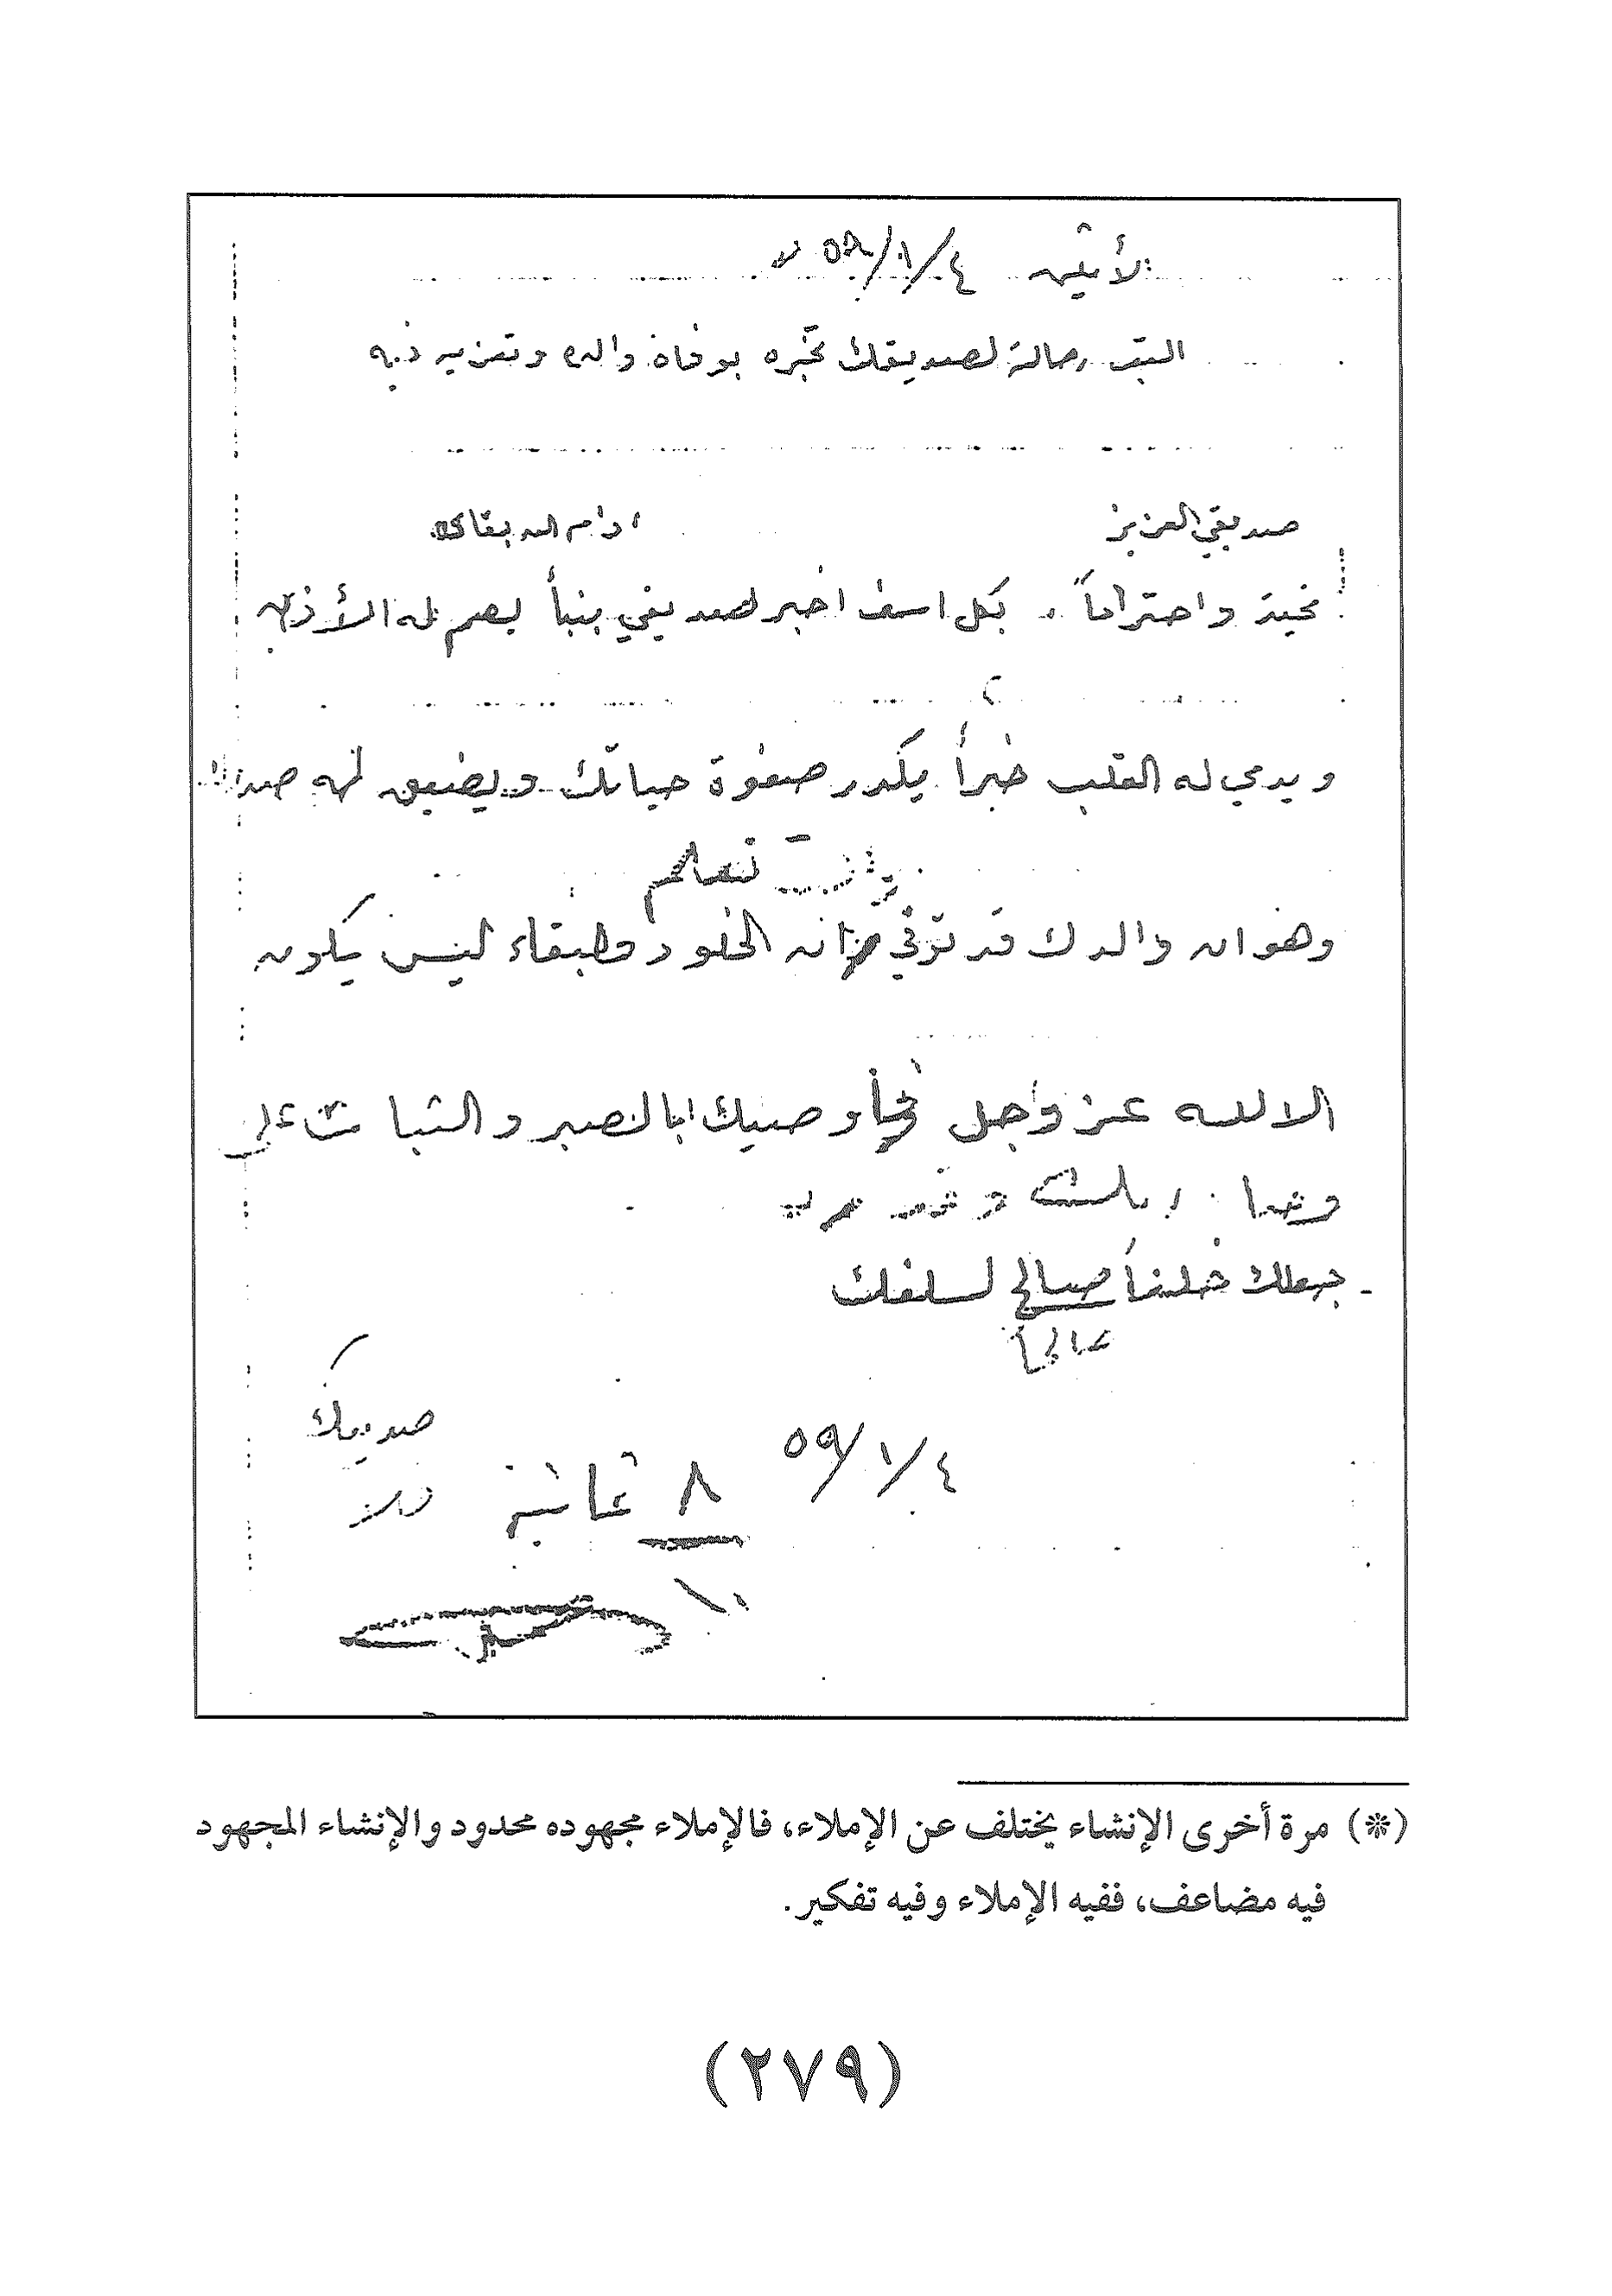 الأثنين ٤/١/٥٨
اكتب رسالة لصديقك تخبره بوفاة والده وتعزيه فيه
صديقي العزيز ادام الله بقائك
تحية واحتراماً. بكل اسف اخبر لصديقي بنبأ يصم له الأذن
ويدمي له القلب خبراً يكدر صفوة حياتك ويضيق له صدرك
تسلم
وهو ان والدك قد توفي انه الخلود والبقاء ليس يكون
الا لله عز وجل اوصيك بالصبر والثبات على
جعلك خلفاً صالح لسلفك
صالحاً
صديقك
٤/١/٥٩
٨ ثمانية
١٠
(*) مرة أخرى الإنشاء يختلف عن الإملاء، فالإملاء مجهوده محدود والإنشاء المجهود
فيه مضاعف، ففيه الإملاء وفيه تفكير.
(٢٧٩)